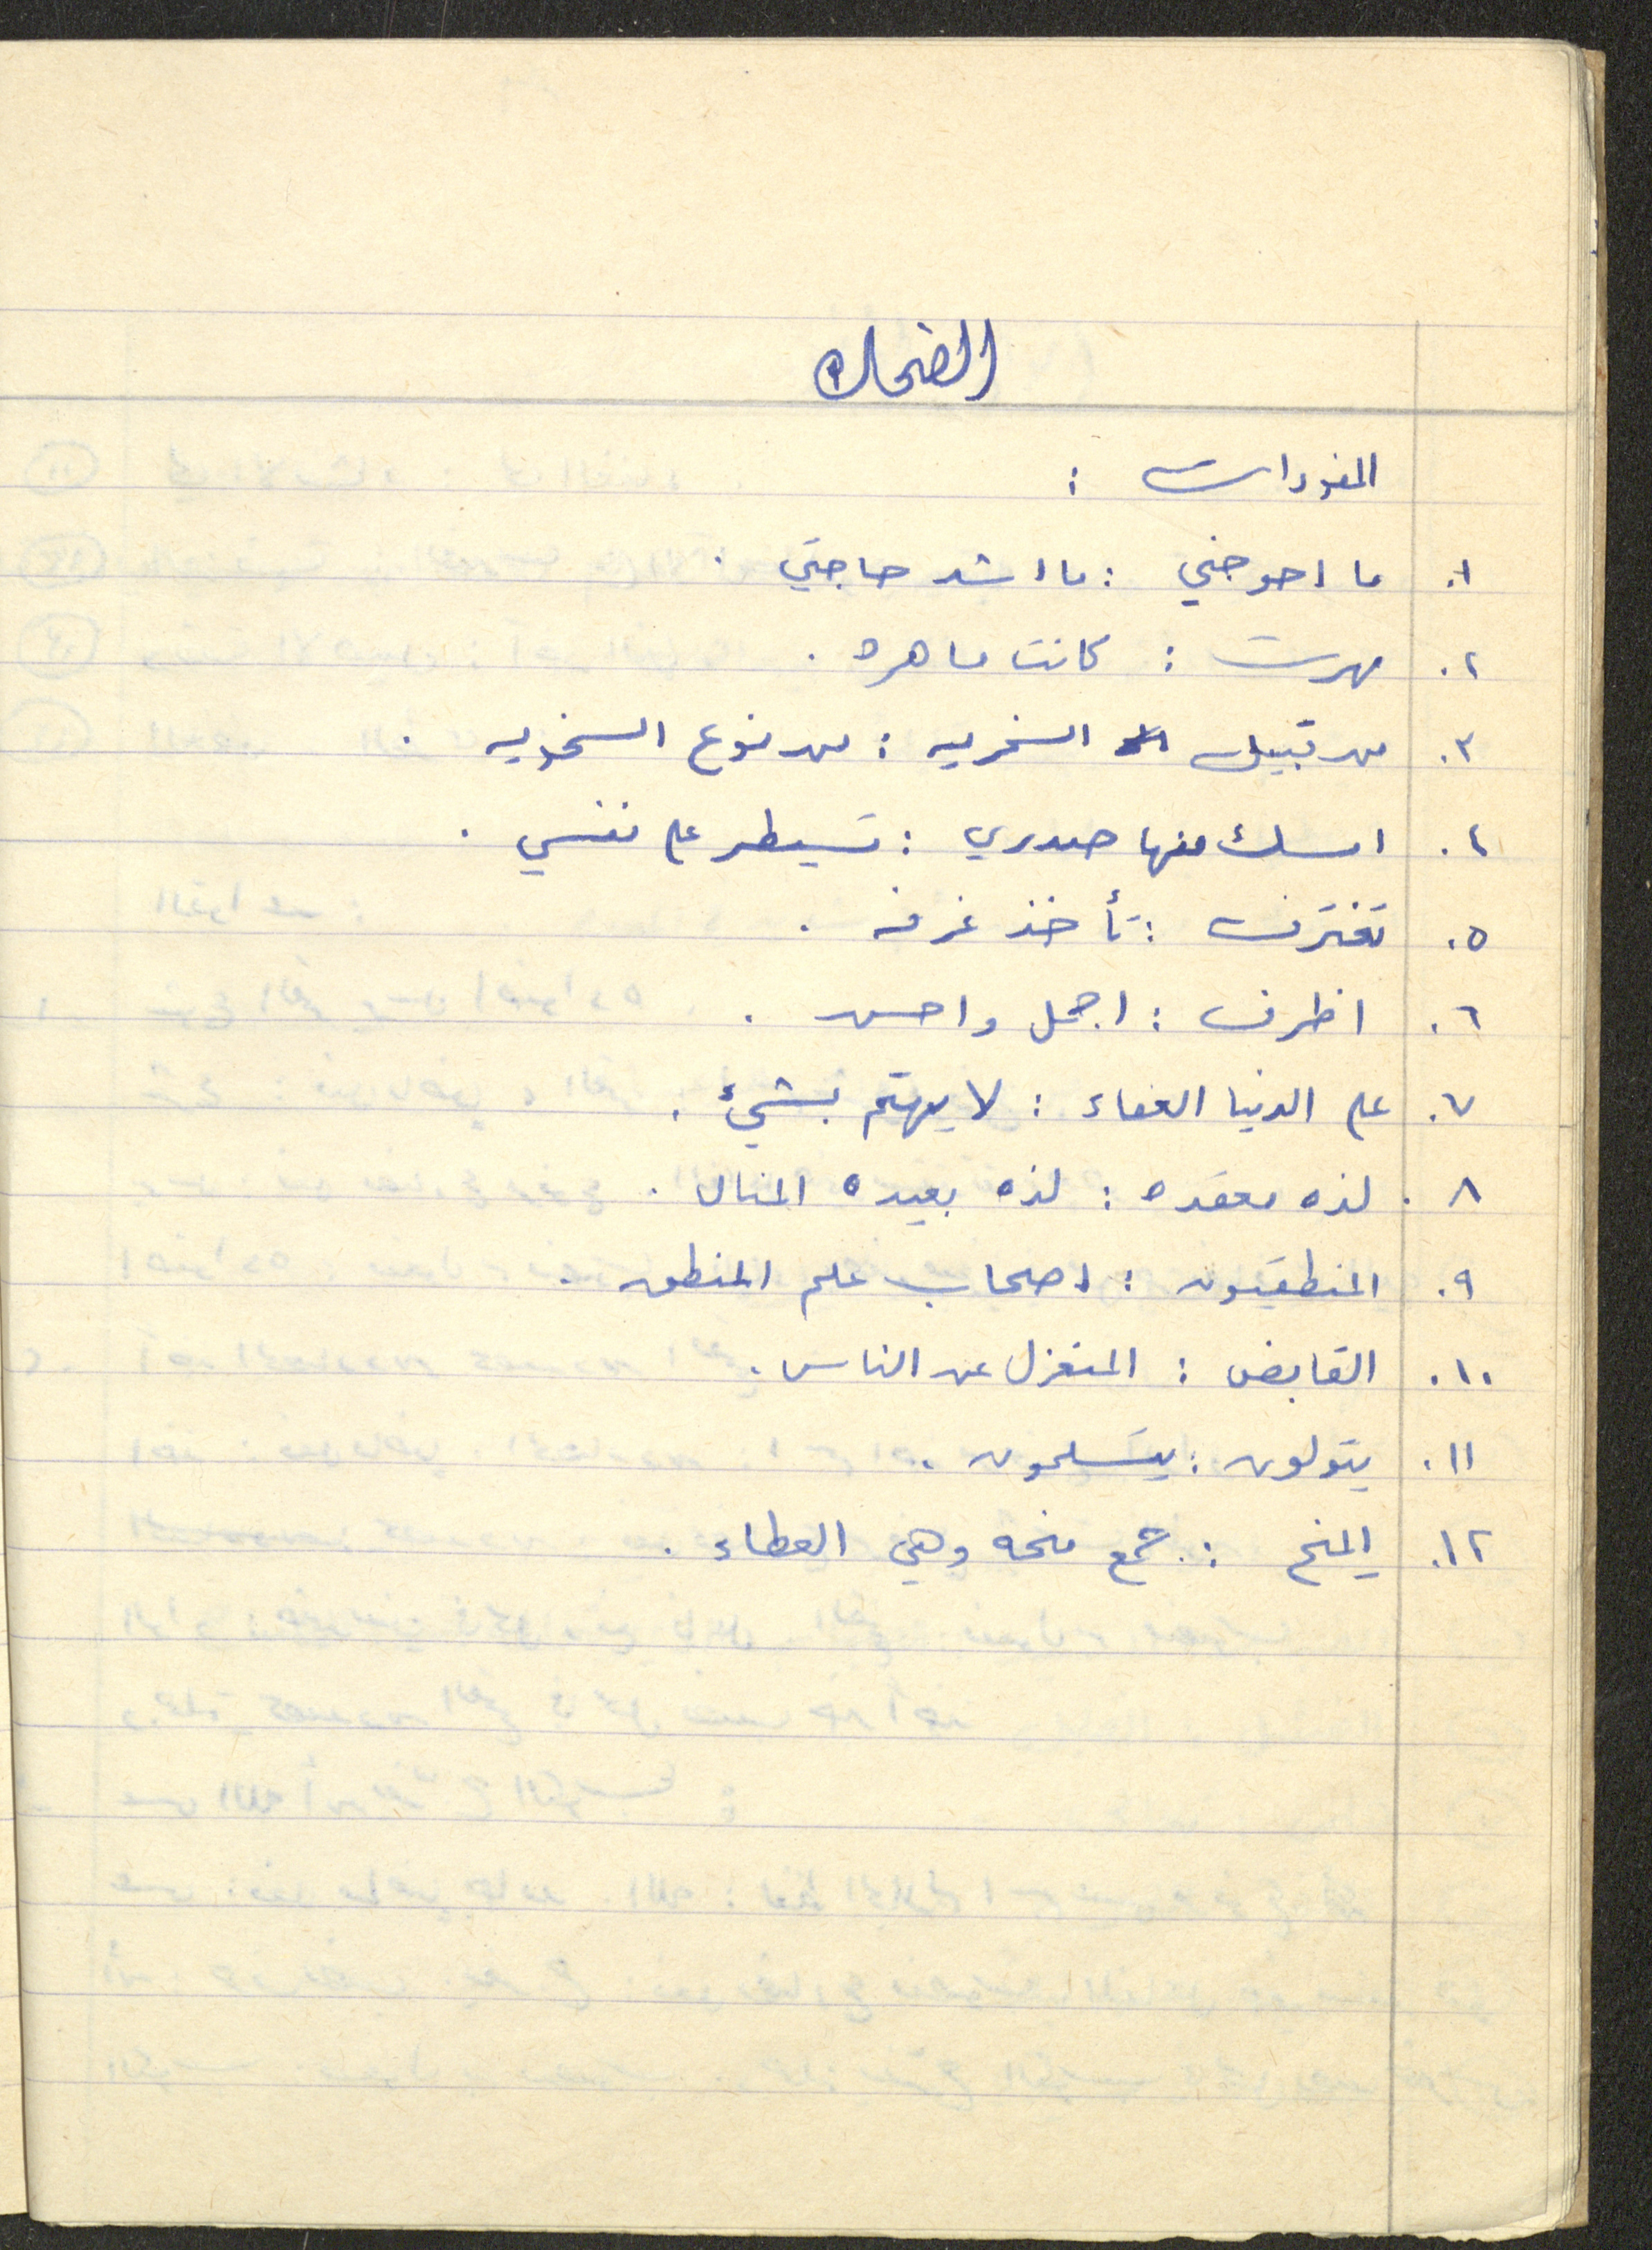 الضحك
المفردات :
١. ما احوجني : ما اشد حاجتي .
٢. مهرت : كانت ماهره .
٣. من قبيل السخريه : من نوع السخريه .
٤. امسك منها صدري : تسيطر على نفسي .
٥. تغترف : تأخذ غرفه .
٦. اظرف : اجمل واحسن .
٧. على الدنيا العفاء : لا يهتم بشيئ .
٨. لذه معقده : لذه بعيده المنال .
٩. المنطقيون : اصحاب علم المنطق .
١٠. القابض : المنعزل عن الناس .
١١. يتولون : يتسلمون .
١٢. المنح : جمع منحه وهي العطاء .